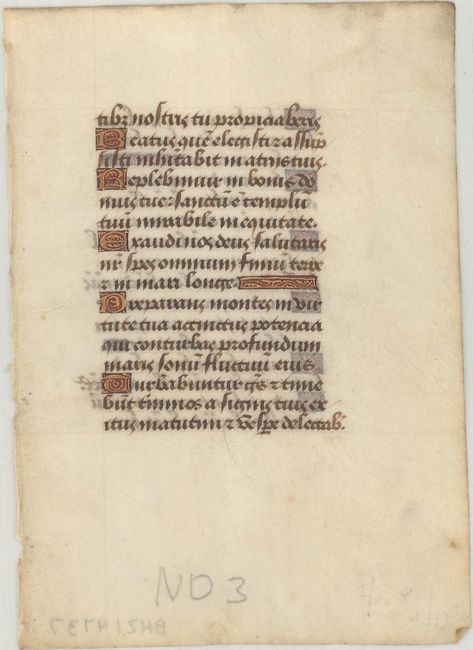 tibꝫ nostris tu propiciaberis
Beatus quē elegisti ⁊ assūp
sisti inhītabit in atriis tuis.
Replebimur in bonis do
mus tue: sanctū ē templū
tuū mirabile in equitate.
Exaudi nos deus salutaris
nr̄ spes omnium finiū terre
⁊ in mari longe.
Preparans montes in vir
tute tua accinctus potencia
qui conturbas profundum
maris sonū fluctuū eius
Turbabuntur gēs ⁊ time
būt qui tīminos a signis tuis ex
itus matutini ⁊ vespe delectab̄.
NO 3
BHZ14737